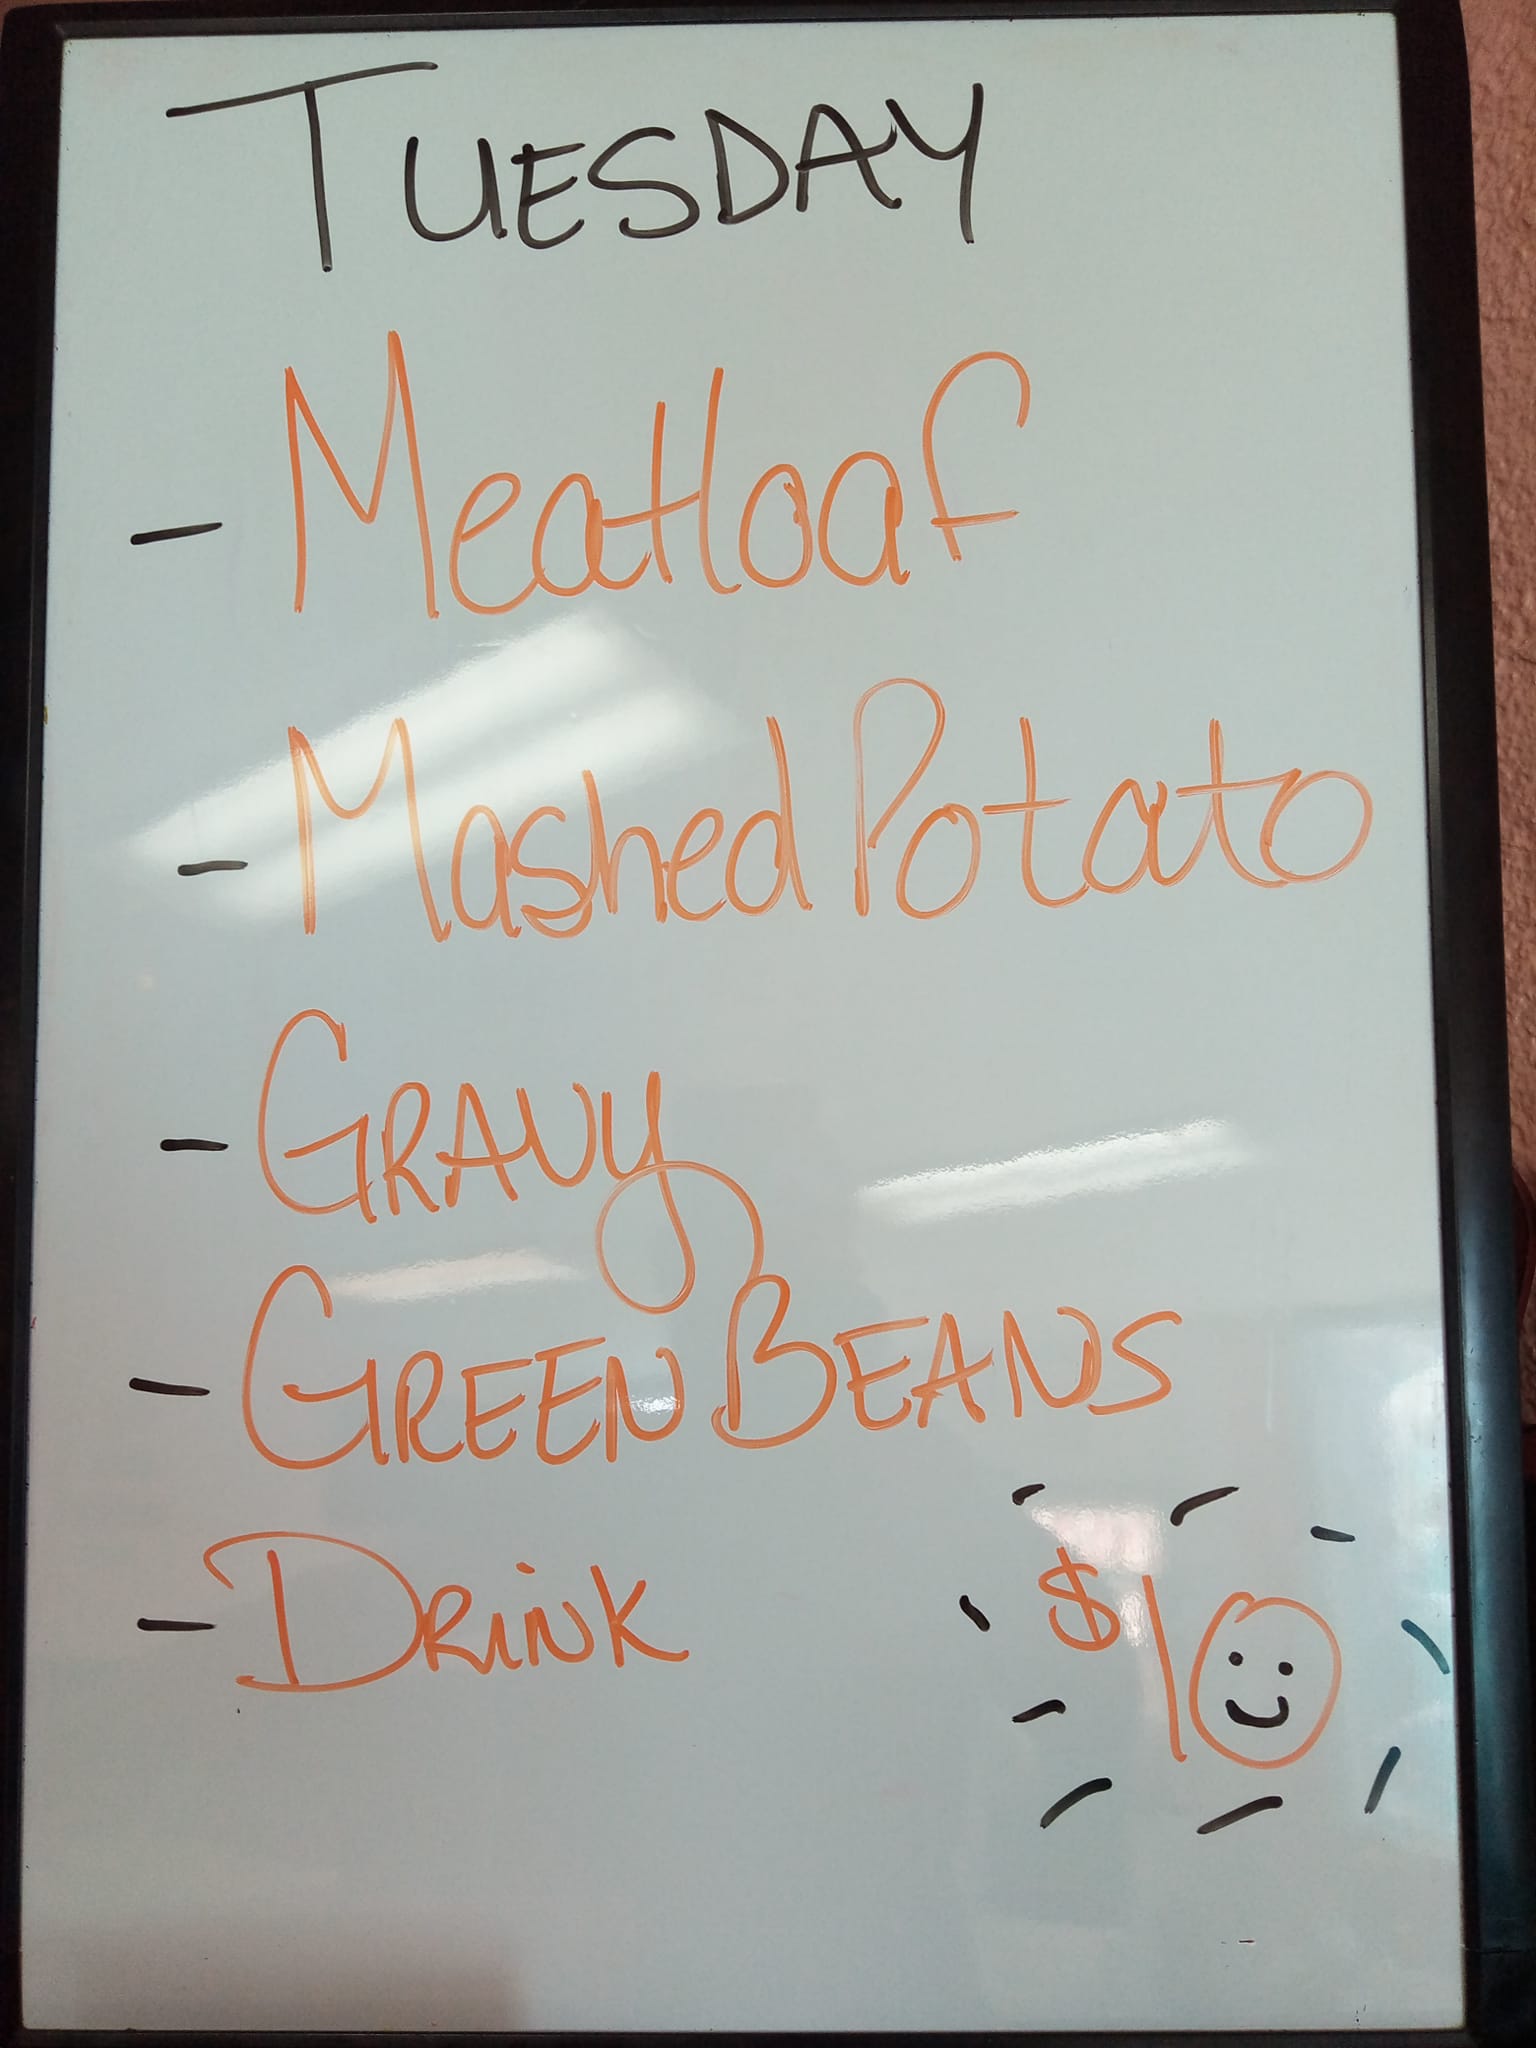 TUESDAY
- Meatloaf
- Mashed Potato
- GRAVY
- GREEN BEANS
- DRiNK
$10